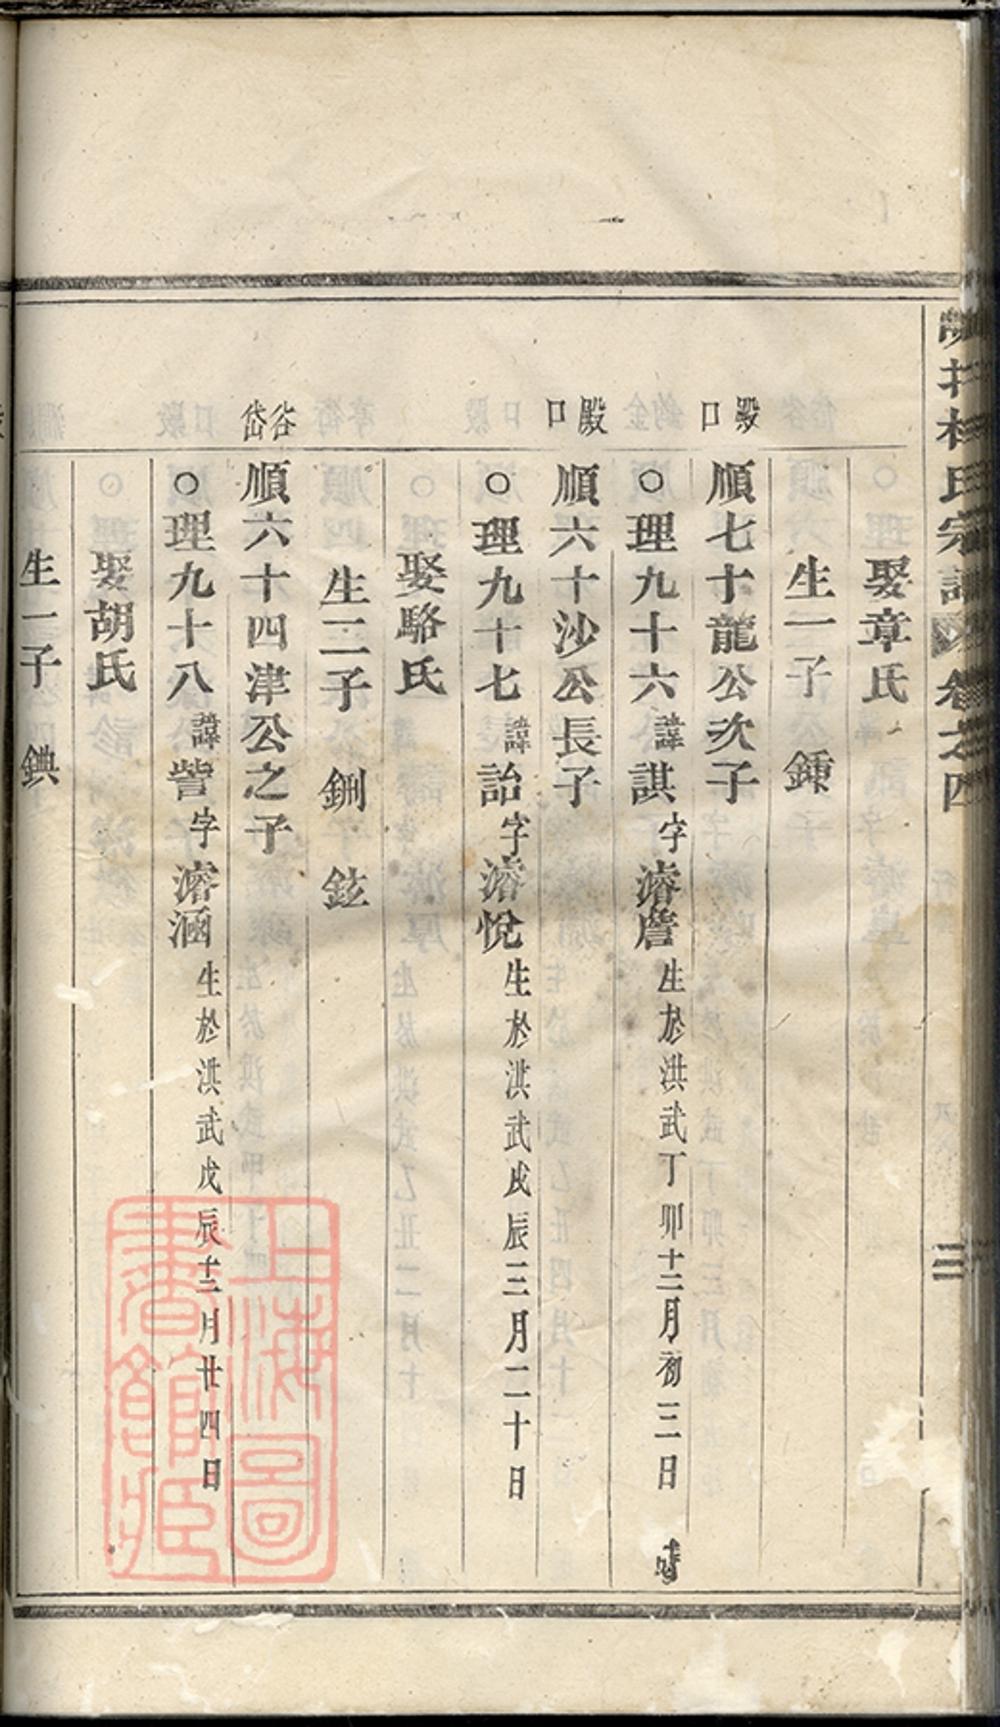 氏宗譜 卷之四
三
娶章氏
生一子 鍾
殿口
順七十龍公次子
○理九十六諱諆字濬詹生於洪武丁卯十二月初三日
殿口
順六十沙公長子
○理九十七諱詒字濬悅生於洪武戊辰三月二十日
娶駱氏
生二子 鉶 鉉
谷岱
順六十四津公之子
○理九十八諱訾字濬涵生於洪武戊辰十二月廿四日
娶胡氏
生一子 錪
上海圖書館藏